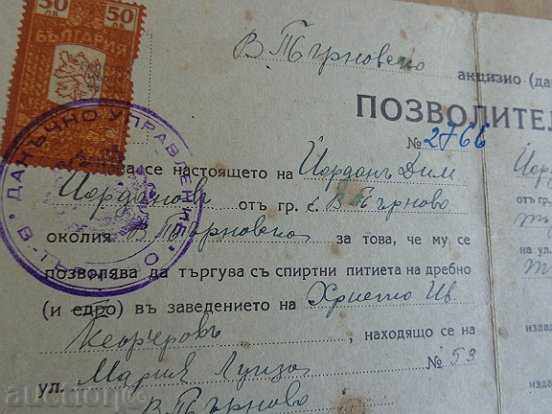 50 50
ЛВ. ЛВ.
БЪЛГАРИЯ
В. Търновско акцизно (да
ПОЗВОЛИТЕЛ
№ 2766
ДАНЪЧНО УПРАВЛЕНИЕ
се настоящето на Йорданъ Дим.
Йордановъ отъ гр. с. В. Търново
околия В. Търновска за това, че му се
позволява да търгува съ спиртни питиета на дребно
(и едро) въ заведението на Христо Ив.
, находящо се на
ул. Мария Луиза № 53
В. Търново
Йор
на ул.
издад
изда